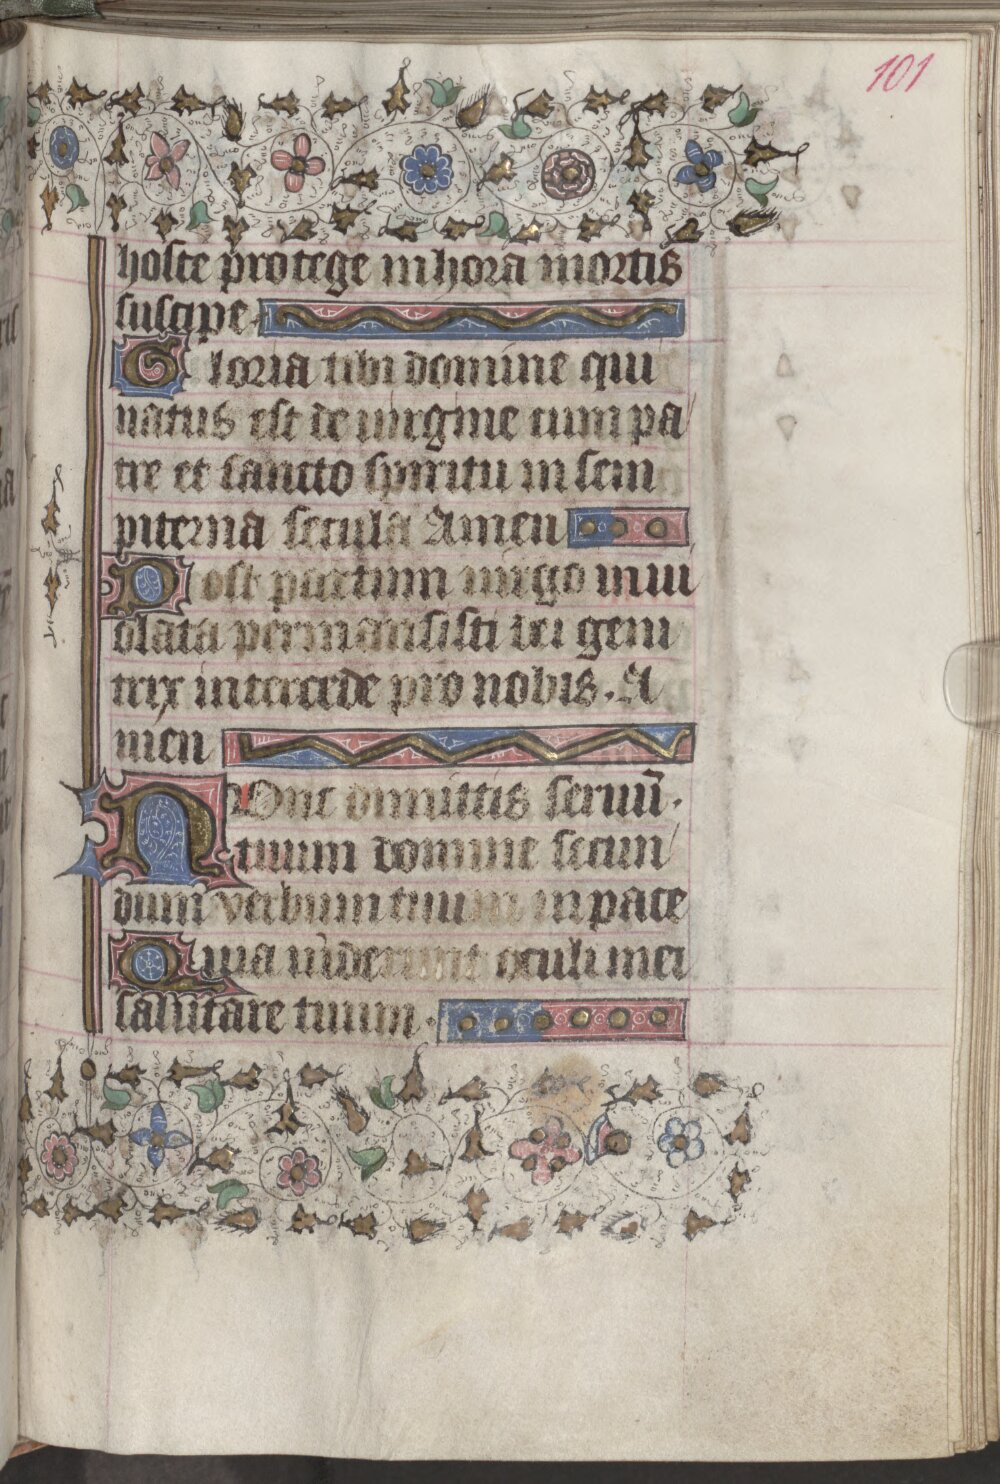 101
hoste protege in hora mortis
suscipe
Gloria tibi domine qui
natus est de virgine cum pa
tre et sancto spiritu in sem
piterna secula Amen
Post partum virgo invi
olata permansisti dei geni
trix intercede pro nobis. A
men
Nunc dimittis servū.
tuum domine secun
dum verbum tuum in pace
Quia viderunt oculi mei
salutare tuum.